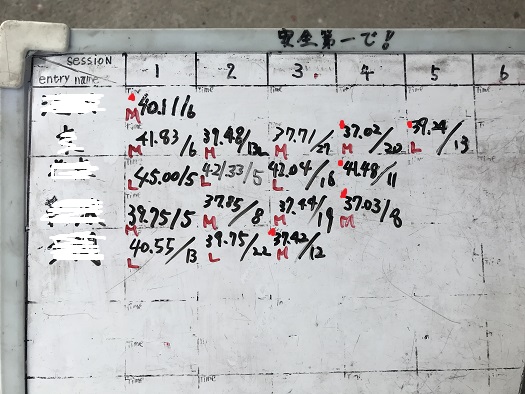 安全第一で!!
SESSION 1 2 3. 4 5 6
entry name
Time Time Time Time Time Time
40.11/6
M
41.83/6 37.48/132 37.71/27 37.02/20 39.24/13
M M M M L
45.00/5 42/33/5 42.04/16 41.48/11
L L L L
39.75/5 37.85/8 37.44/19 37.03/8
M M M M
40.55/13 39.75/22 37.42/12
L L M
Time Time Time